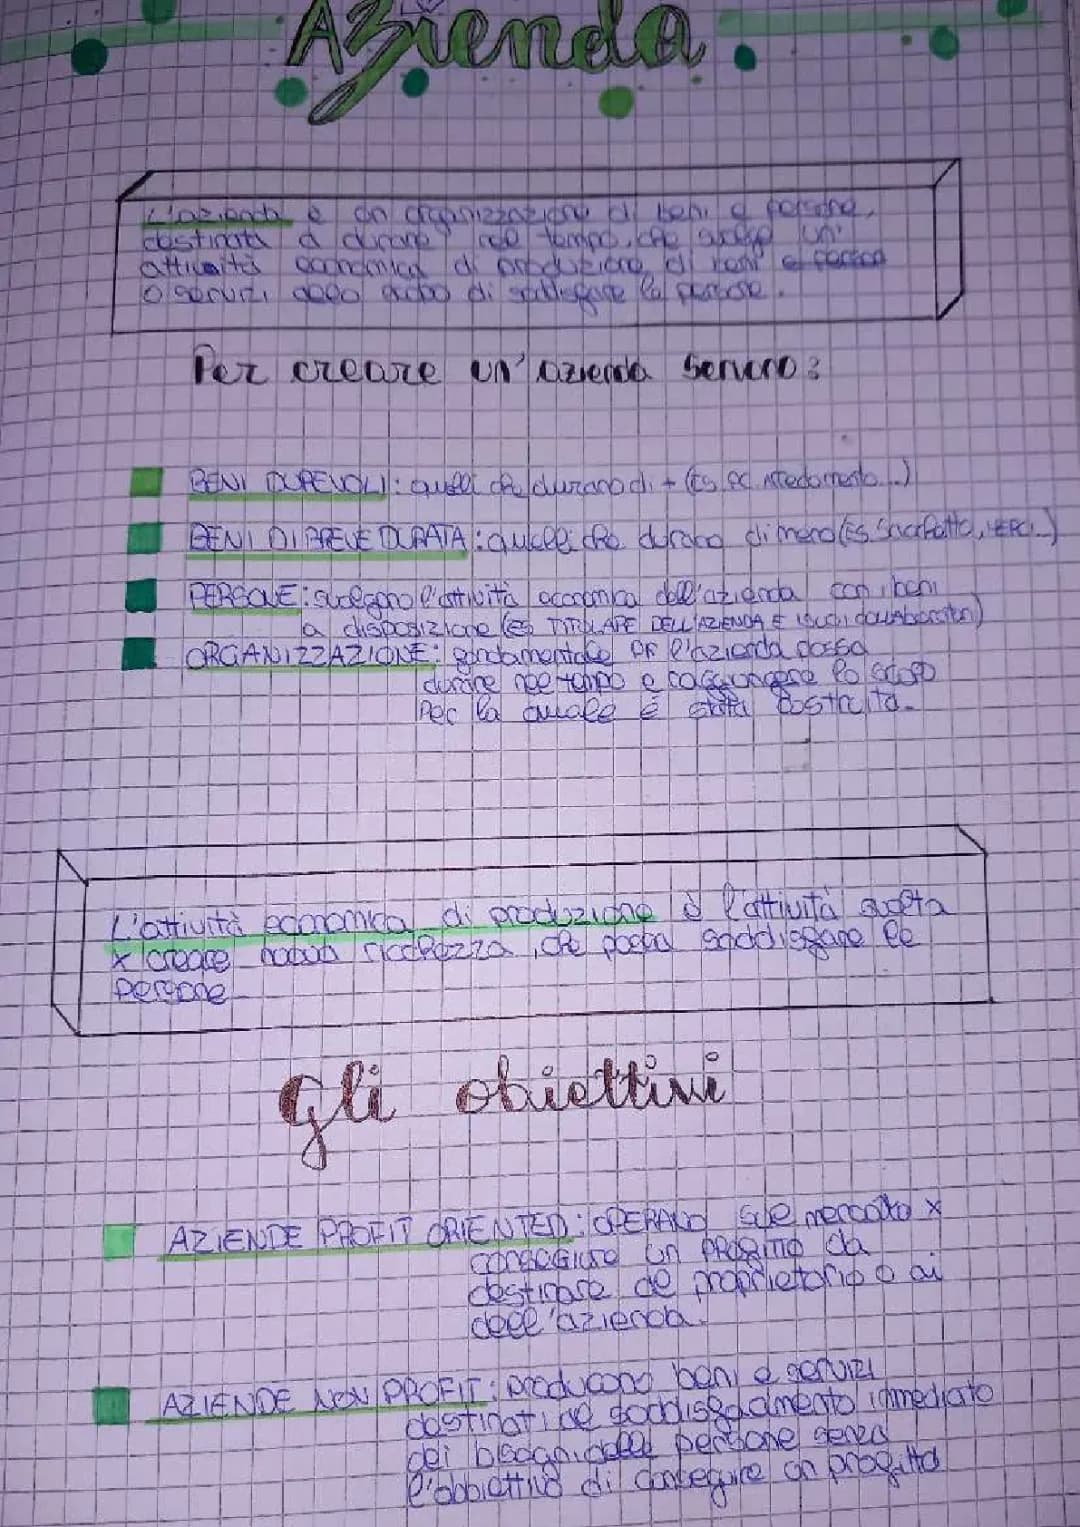 Azienda
L'azienda è un organizzazione di beni e persone,
destinata a durare nel tempo, che svolge un'
attività economica di produzione di beni e
o servizi allo scopo di soddisfare le persone.
Per creare un'azienda servono:
BENI DUREVOLI: quelli che durano di + (ES. PC, Arredamento...)
BENI DI BREVE DURATA: quelli che durano di meno (ES.
PERSONE: svolgono l'attività economica dell'azienda con i beni
a disposizione (ES TITOLARE DELL'AZIENDA E I SUOI collaboratori)
ORGANIZZAZIONE: fondamentale l'azienda possa
durare nel tempo e raggiungere lo scopo
Per la quale è stata costruita.
L'attività economica di produzione è l'attività svolta
x creare nuova ricchezza, che possa soddisfare le
persone
Gli obiettivi
AZIENDE PROFIT ORIENTED: OPERANO sul mercato x
conseguire un PROFITTO da
destinare al proprietario o ai
dell'azienda.
AZIENDE NON PROFIT: producono beni e servizi
destinati al soddisfacimento immediato
dei bisogni delle persone senza
l'obbiettivo di conseguire un profitto